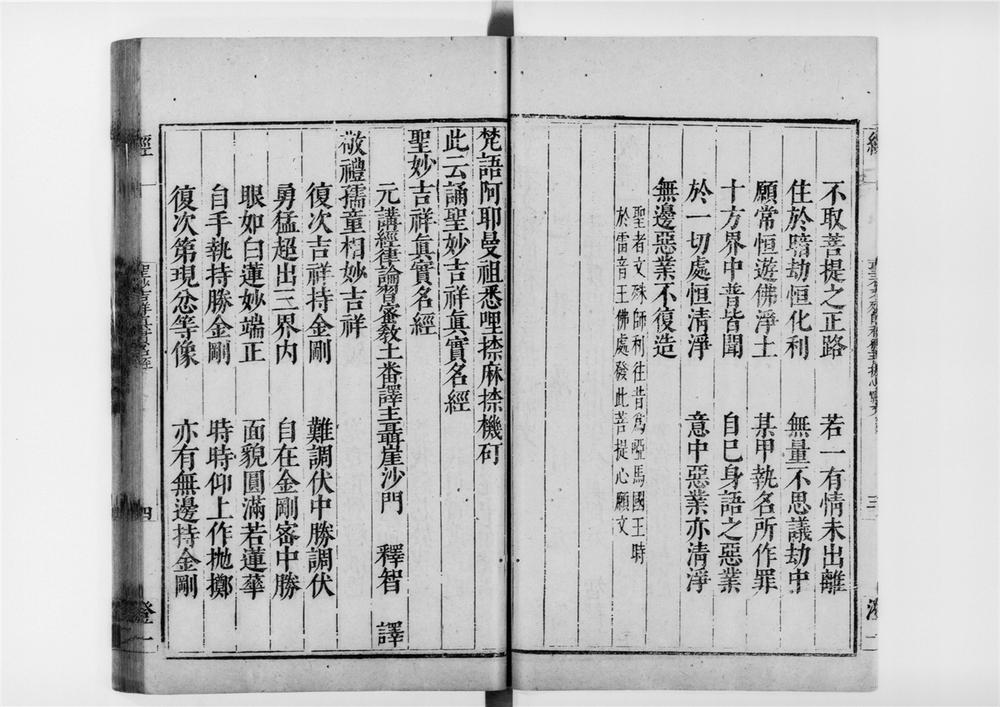 不取菩提之正路　若一有情未出離
住於暗劫恒化利　無量不思議劫中
願常恒遊佛淨土　某甲執名所作罪
十方界中普皆聞　自已身語之惡業
於一切處恒清淨　意中惡業亦清淨
無邊惡業不復造
聖者文殊師利往昔爲啞馬國王時
於雷音王佛處發此菩提心願文
梵語阿耶曼祖悉哩捺麻捺機矴
此云誦聖妙吉祥眞實名經
聖妙吉祥眞實名經
元講經律論習密教土番譯主聶崖沙門　釋智　譯
敬禮孺童相妙吉祥
復次吉祥持金剛　難調伏中勝調伏
勇猛超出三界內　自在金剛密中勝
眼如白蓮妙端正　面貌圓滿若蓮華
自手執持勝金剛　時時仰上作拋擲
復次第現忿等像　亦有無邊持金剛
經
聖妙吉祥眞實名經
四